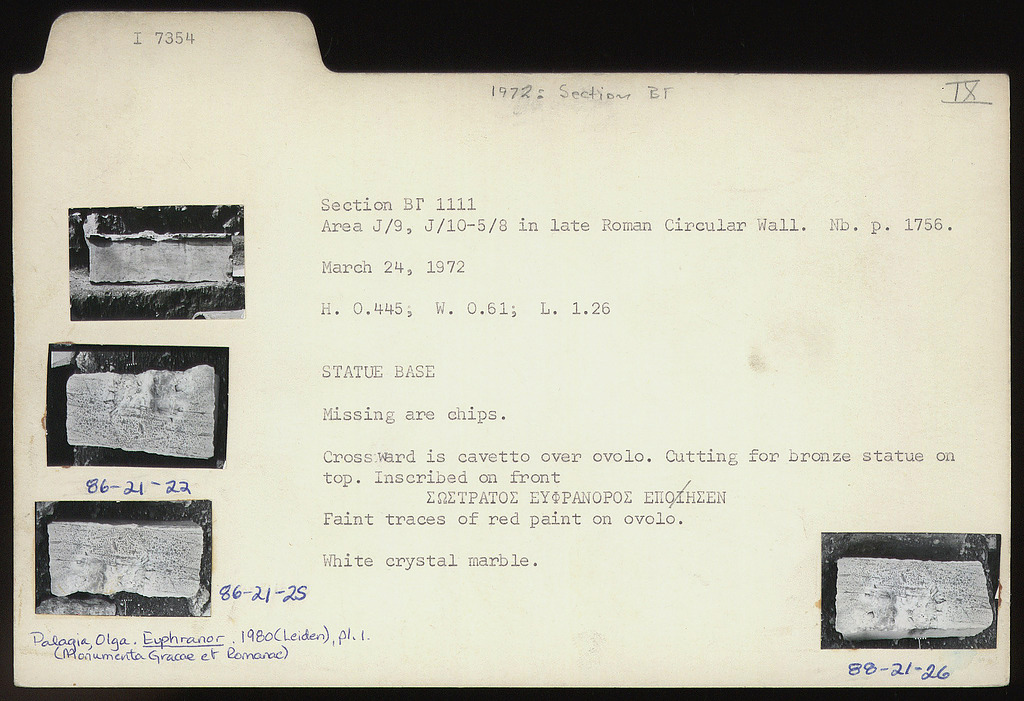 I 7354
1972: Section ΒΓ
IX
Section ΒΓ 1111
Area J/9, J/10-5/8 in late Roman Circular Wall. Nb. p. 1756.
March 24, 1972
H. 0.445; W. 0.61; L. 1.26
STATUE BASE
Missing are chips.
Cross Ward is cavetto over ovolo. Cutting for bronze statue on
top. Inscribed on front
ΣΩΣΤΡΑΤΟΣ ΕΥΦΡΑΝΟΡΟΣ ΕΠΟΙΗΣΕΝ
Faint traces of red paint on ovolo.
White crystal marble.
86-21-22
86-21-25
Palagia, Olga. Euphranor. 1980 (Leiden), pl. 1.
(Monumenta Graeca et Romanae)
88-21-26